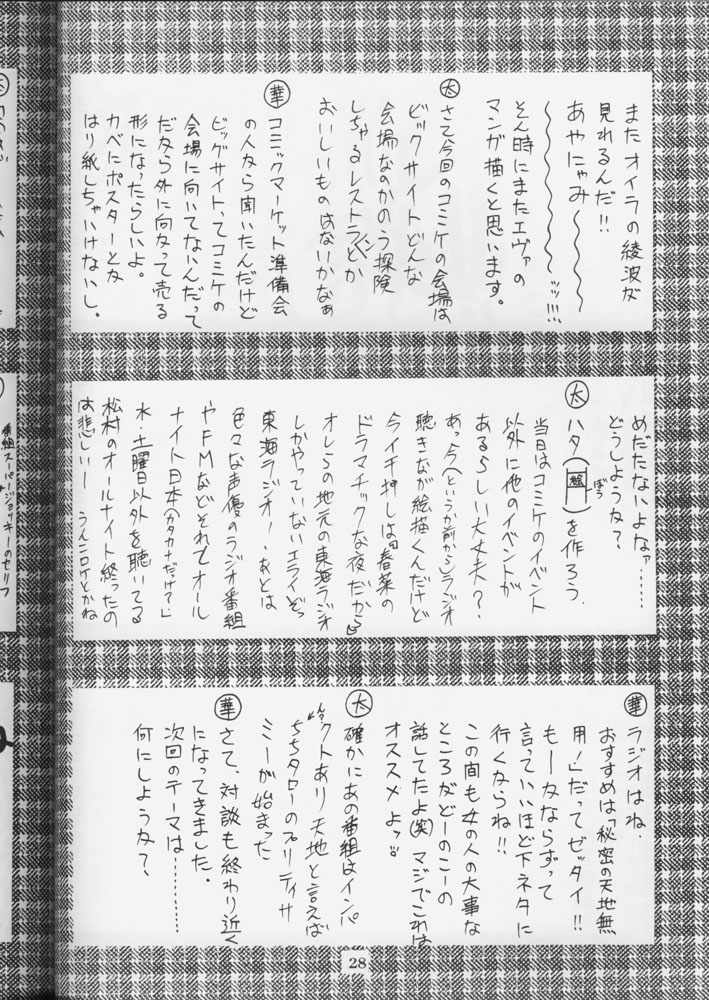 またオイラの綾波が
見れるんだ!!
あやにゃみ〜〜〜
〜〜〜〜〜〜ッッ!!!
そん時にまたエヴァの
マンガ描くと思います。
太 さて今回のコミケの会場は
ビックサイトどんな
会場なのかのう探険
しちゃるレストランとか
おいしいものはないかなぁ
華 コミックマーケット準備会
の人から聞いたんだけど
ビッグサイトってコミケの
会場に向いてないんだって
だから外に向かって売る
形になったらしいよ。
カベにポスターとか
はり紙しちゃいけないし。
めだたないよなァ……
どうしようか?
太 ハタ(絵 ぼう)を作ろう.
当日はコミケのイベント
以外に他のイベントが
あるらしい大丈夫?
あっ今(というか前から)ラジオ
聴きなが絵描くんだけど
今イチ押しは『春菜の
ドラマチックな夜だから』
オレらの地元の東海ラジオ
しかやっていないエライぞっ
東海ラジオ!.あとは
色々な声優のラジオ番組
やFMなどそれとオール
ナイト日本(カタカナだっけ?)
水・土曜日以外を聴いてる
松村のオールナイト終ったの
は悲しいー うんこロケとかね
番組スーパージョッキーのセリフ
華 ラジオはね、
おすすめは「秘密の天地無
用!」だってゼッタイ!!
もーかならずって
言っていいほど下ネタに
行くならね!!
この間も女の人の大事な
ところがどーのこーの
話してたよ(笑)マジでこれは
オススメよッ
太 確かにあの番組はインパ
クトあり天地と言えば
ミミーが始まった
華 さて、対談も終わり近く
になってきました。
次回のテーマは………
何にしようか?
28